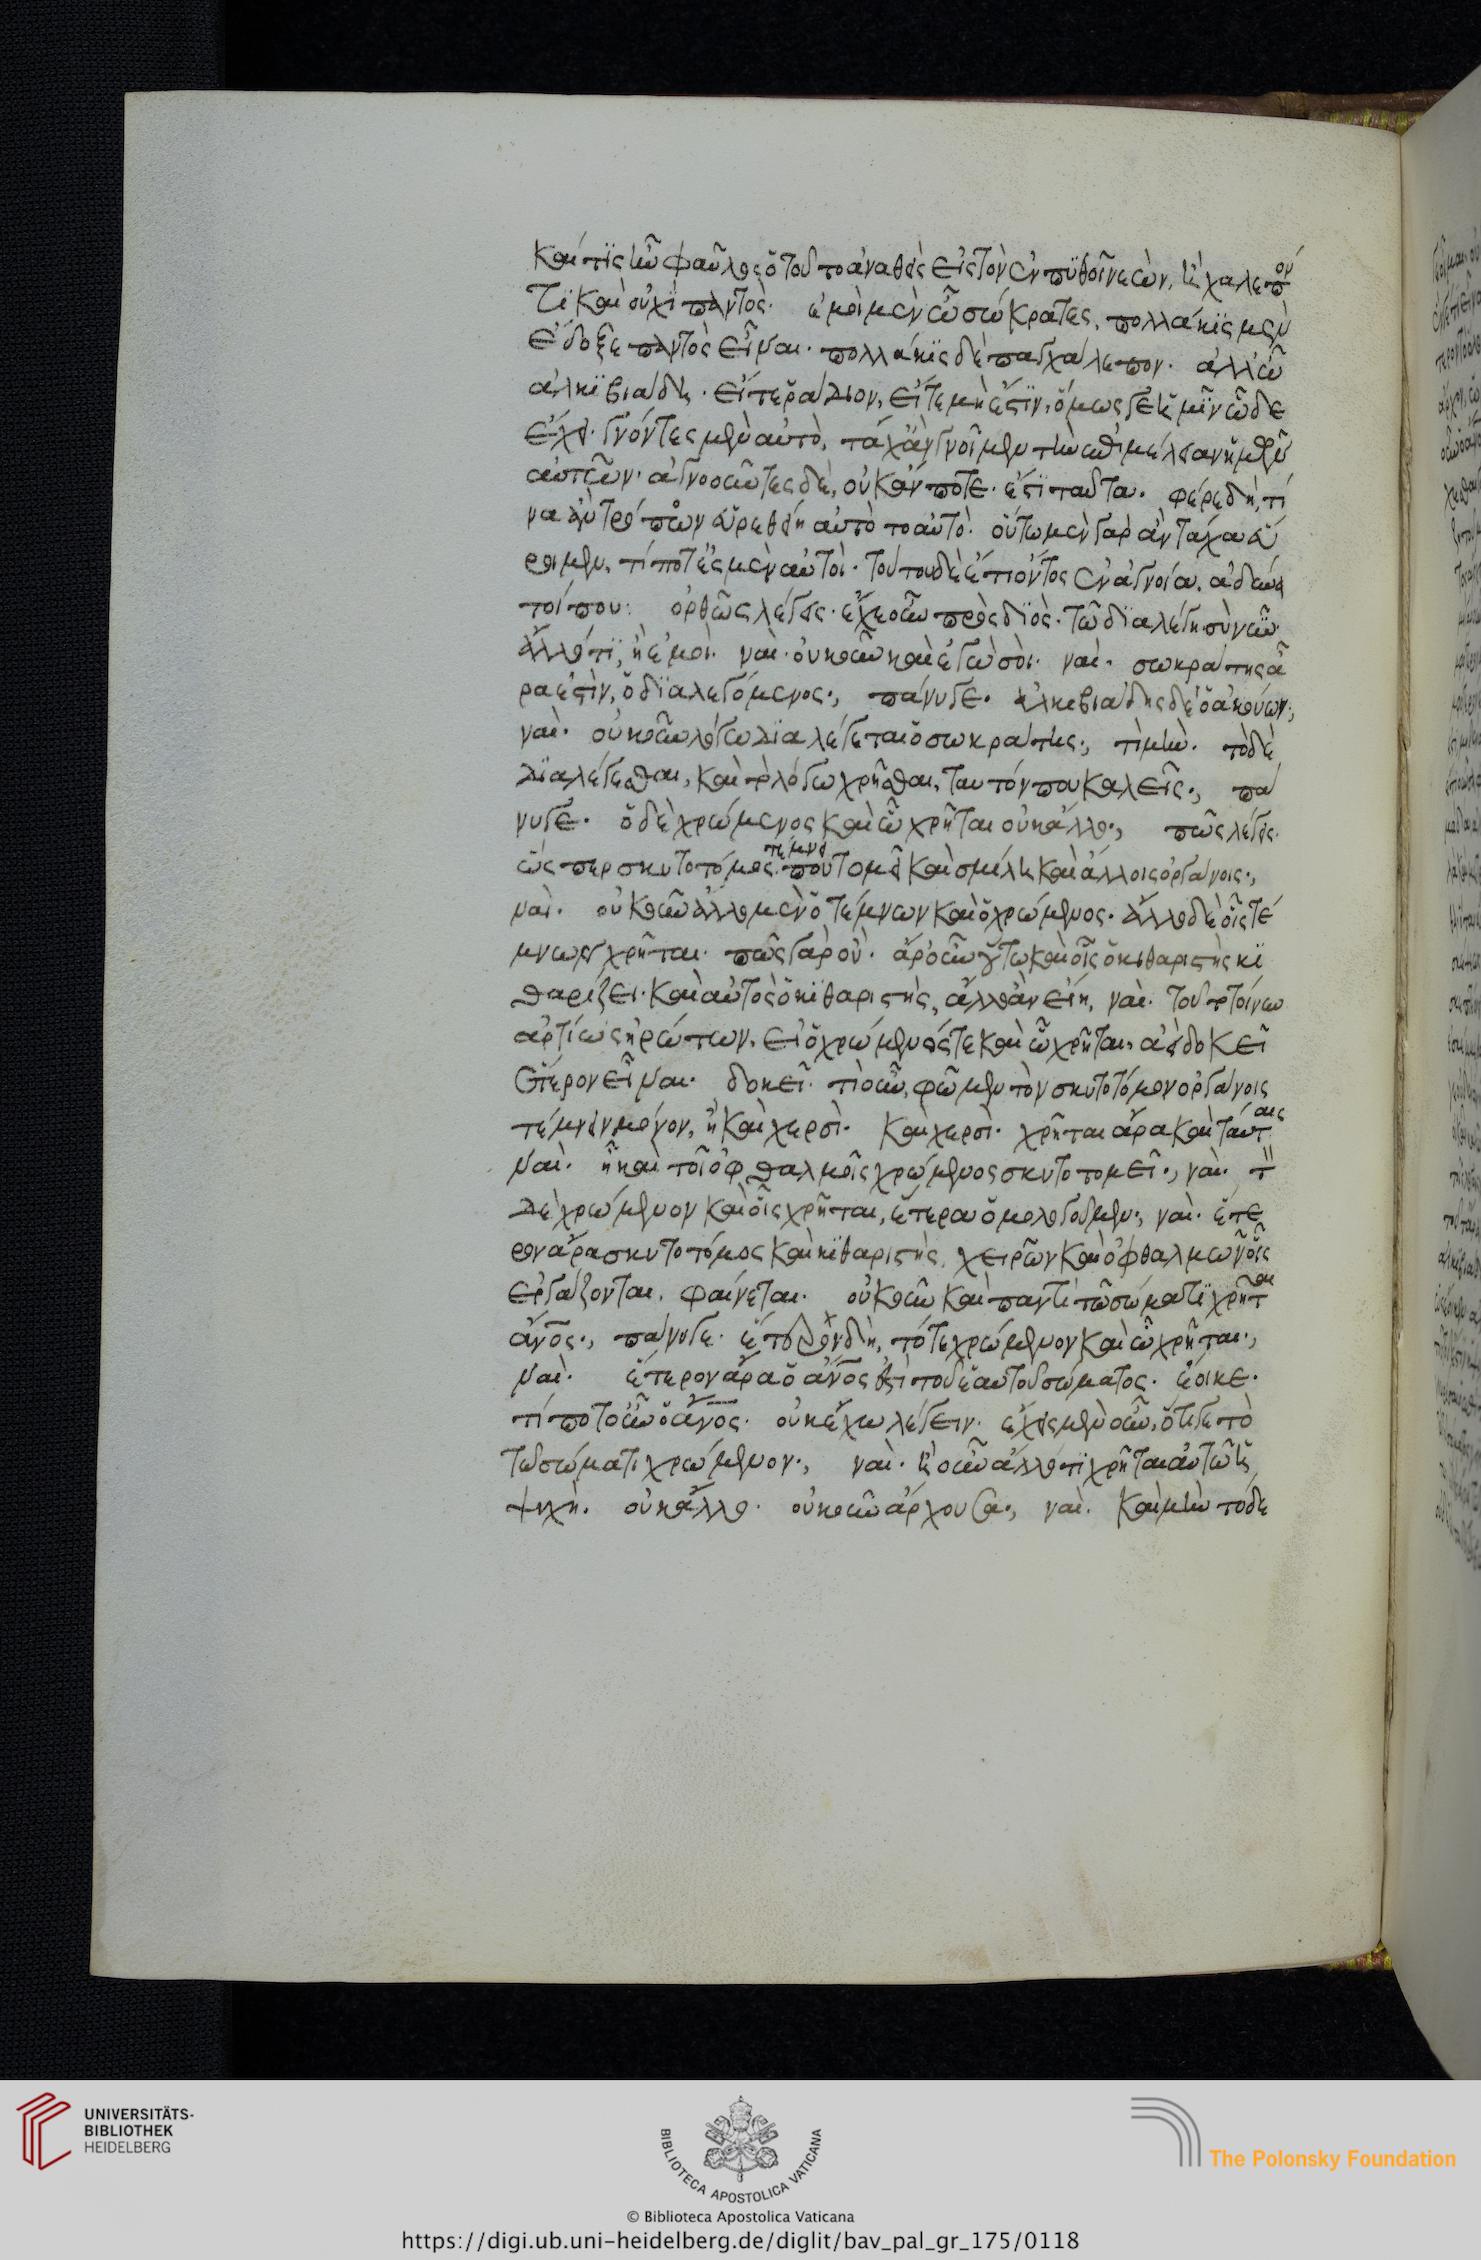 καί τις ἦν φαῦλος ὁ τοῦτο ἀναθεὶς εἰς τὸν ἐν πυθοῖ νεών, ἢ χαλεπόν
τι καὶ οὐχὶ παντός. ἐμοὶ μὲν ὦ σώκρατες, πολλάκις μὲν
ἔδοξε παντὸς εἶναι. πολλάκις δὲ παγχάλεπον. ἀλλ' ὦ
ἀλκιβιάδη. εἴτε ῥάδιον, εἴτε μή ἐστιν, ὅμως γε ἡμῖν ὧδε
ἔχει. γνόντες μὲν αὐτό, τάχ' ἂν γνοῖμεν τὴν ἐπιμέλειαν ἡμῶν
αὐτῶν. ἀγνοοῦντες δέ, οὐκ ἄν ποτε. ἔστι ταῦτα. φέρε δή, τί
να ἂν τρόπον εὑρεθείη αὐτὸ τὸ αὐτό. οὕτω μὲν γὰρ ἂν τάχα εὕ
ροιμεν, τί ποτ' ἐσμὲν αὐτοί. τούτου δὲ ἔτι ὄντος ἐν ἀγνοίᾳ. ἀδύνα
τοί που: ὀρθῶς λέγεις. ἔχε οὖν πρὸς διός. τῷ διαλέγῃ σὺ νῦν.
ἄλλό τι, ἢ ἐμοί. ναί. οὐκοῦν καὶ ἐγὼ σοί. ναί. σωκράτης ἄ
ρα ἐστίν, ὁ διαλεγόμενος., πάνυ γε. ἀλκιβιάδης δὲ ὁ ἀκούων.,
ναί. οὐκοῦν λόγῳ διαλέγεται ὁ σωκράτης., τί μήν. τὸ δὲ
διαλέγεσθαι, καὶ τὸ λόγῳ χρῆσθαι, ταυτόν που καλεῖς., πά
νυ γε. ὁ δὲ χρώμενος καὶ ᾧ χρῆται οὐκ ἄλλο., πῶς λέγεις.
ὥσπερ σκυτοτόμος τέμνει που τομεῖ καὶ σμίλῃ καὶ ἄλλοις ὀργάνοις.,
ναί. οὐκοῦν ἄλλο μὲν ὁ τέμνων καὶ ὁ χρώμενος. ἄλλο δὲ οἷς τέ
μνων χρῆται. πῶς γὰρ οὔ. ἆρ' οὖν οὕτω καὶ οἷς ὁ κιθαριστὴς κι
θαρίζει. καὶ αὐτὸς ὁ κιθαριστής, ἄλλο ἂν εἴη, ναί. τοῦτο τοίνυν
ἀρτίως ἠρώτων, εἰ ὁ χρώμενος τε καὶ ᾧ χρῆται, ἀεὶ δοκεῖ
ἕτερον εἶναι. δοκεῖ. τί οὖν, φῶμεν τὸν σκυτοτόμον ὀργάνοις
τέμνειν μόνον, ἢ καὶ χερσί. καὶ χερσί. χρῆται ἄρα καὶ ταύταις
ναί. ἢ καὶ τοῖς ὀφθαλμοῖς χρώμενος σκυτοτομεῖ., ναί. τὸν
δὲ χρώμενον καὶ οἷς χρῆται, ἕτερα ὁμολογοῦμεν., ναί. ἕτε
ρον ἄρα σκυτοτόμος καὶ κιθαριστής, χειρῶν καὶ ὀφθαλμῶν οἷς
ἐργάζονται. φαίνεται. οὐκοῦν καὶ παντὶ τῷ σώματι χρῆται
ἄνος., πάνυ γε. ἕτερον δὴ, τό τε χρώμενον καὶ ᾧ χρῆται.,
ναί. ἕτερον ἄρα ὁ ἄνος ἐστὶ τοῦ ἑαυτοῦ σώματος. ἔοικε.
τί ποτ' οὖν ὁ ἄνος. οὐκ ἔχω λέγειν. ἔχεις μὲν οὖν, ὅτι γε τὸ
τῷ σώματι χρώμενον., ναί. ἢ οὖν ἄλλο τι χρῆται αὐτῷ ἢ
ψυχή. οὐκ ἄλλο. οὐκοῦν ἄρχουσα., ναί. καὶ μὴν τόδε
UNIVERSITÄTS-
BIBLIOTHEK
HEIDELBERG
BIBLIOTECA APOSTOLICA VATICANA
The Polonsky Foundation
© Biblioteca Apostolica Vaticana
https://digi.ub.uni-heidelberg.de/diglit/bav_pal_gr_175/0118